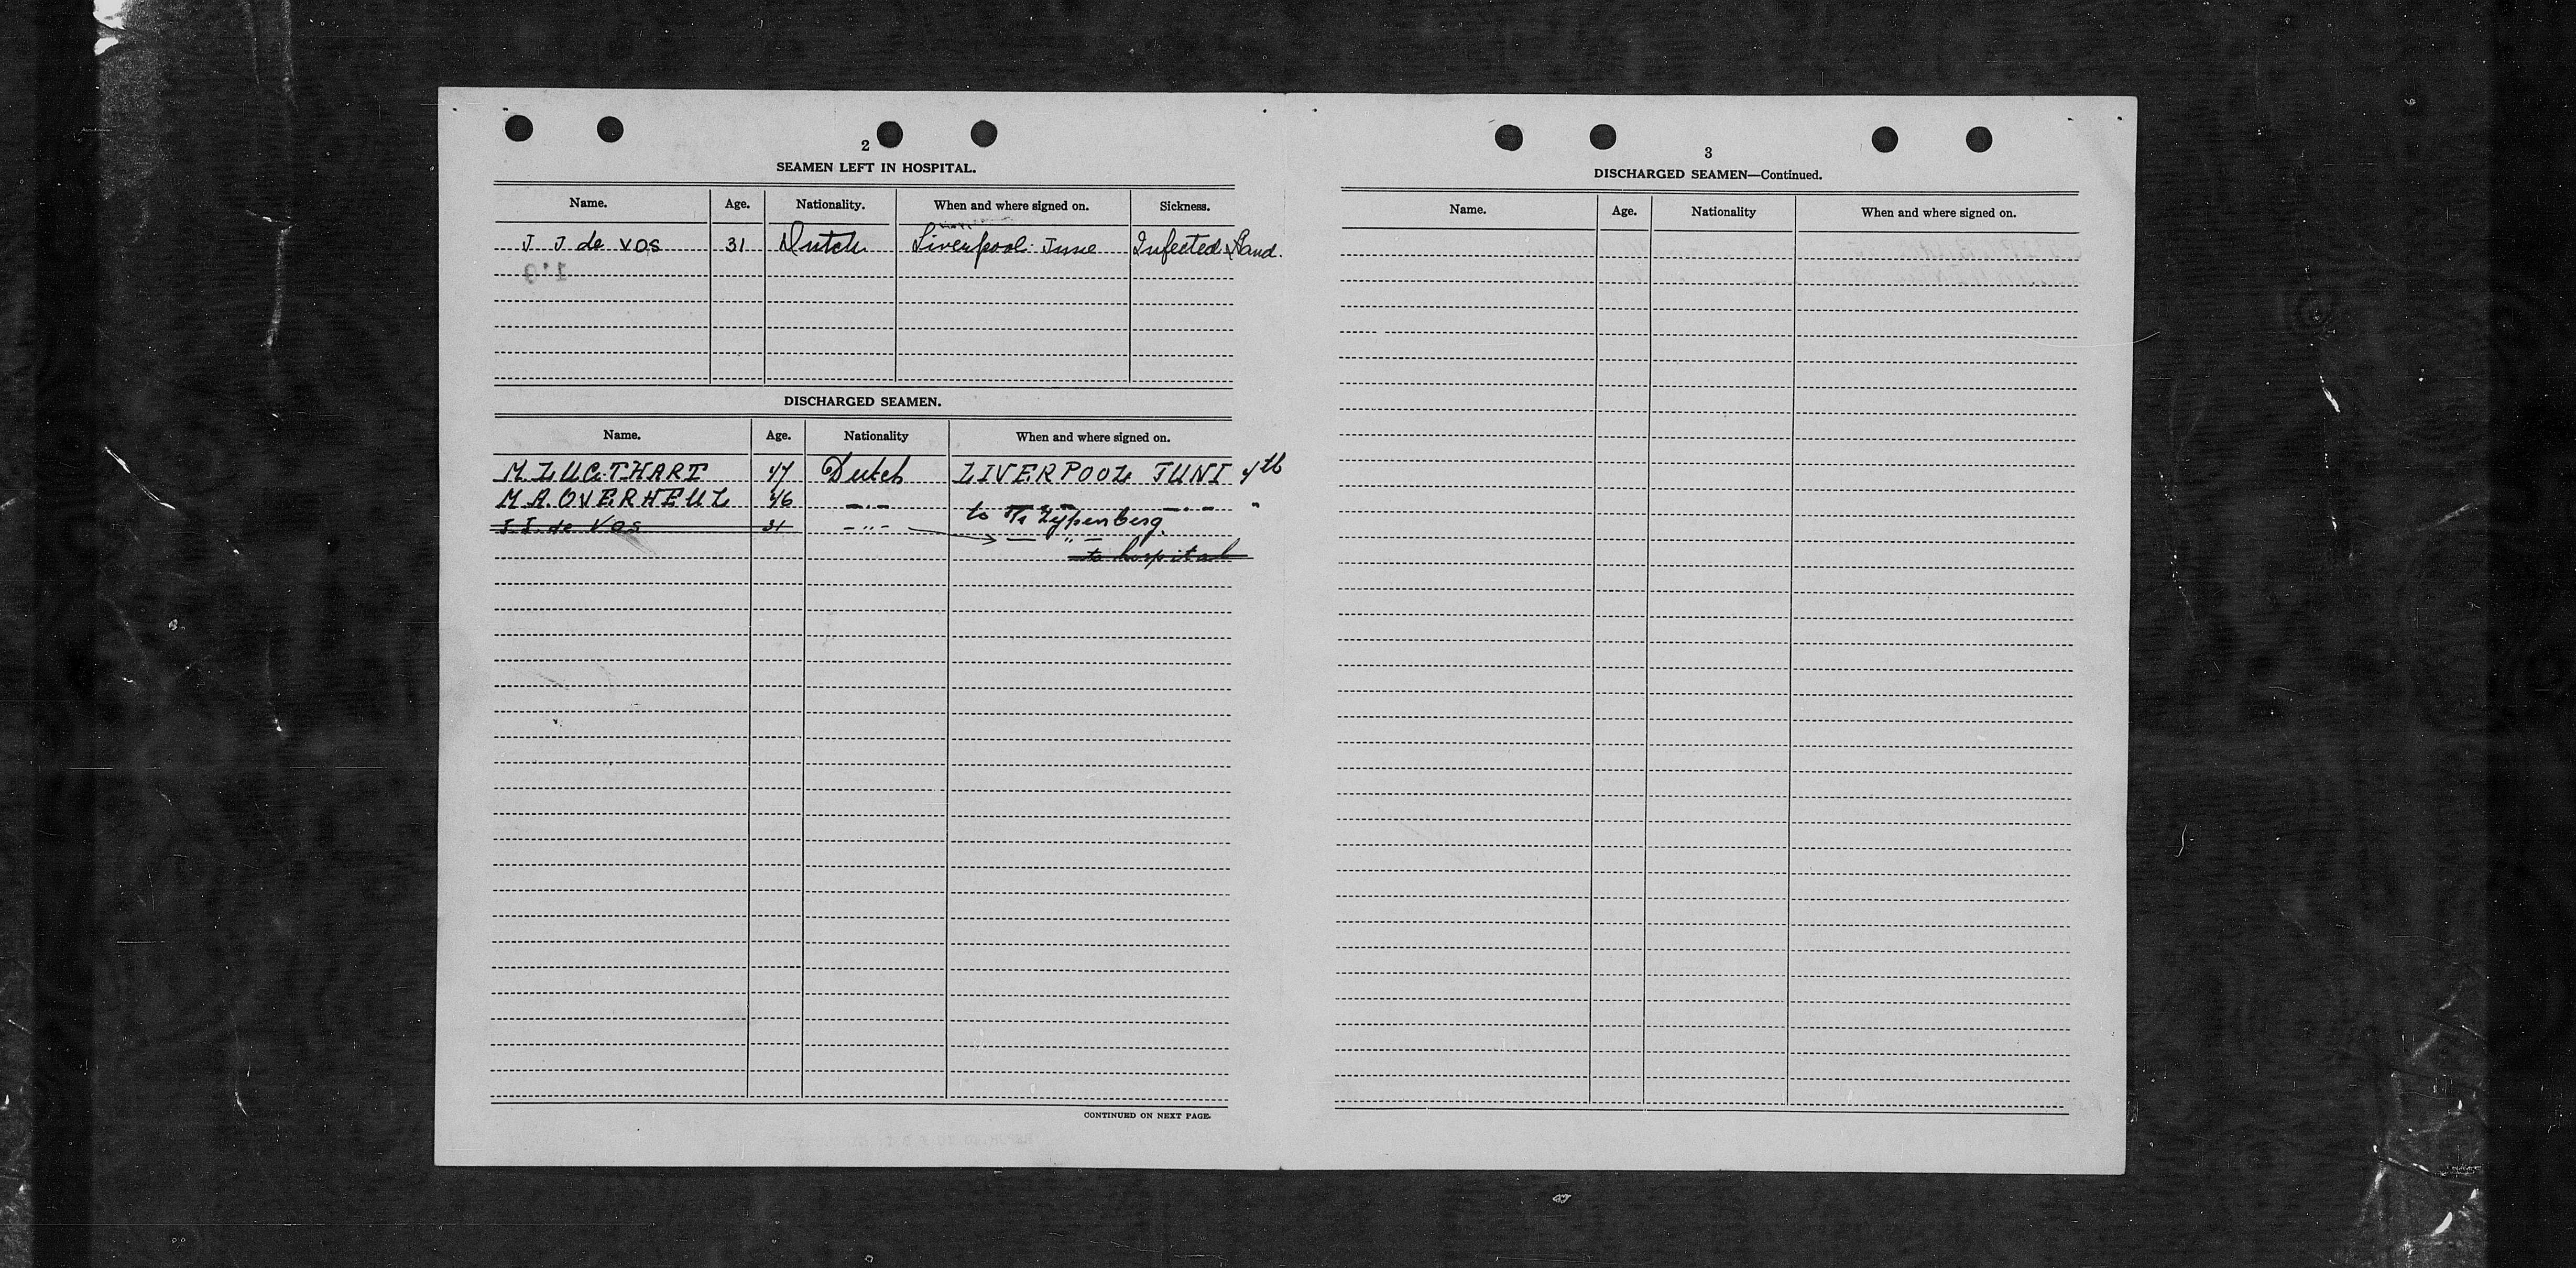 2
SEAMEN LEFT IN HOSPITAL.
Name. Age. Nationality. When and where signed on. Sickness.
J J de Vos 31 Dutch Liverpool June Infected Hand.
DISCHARGED SEAMEN.
Name. Age. Nationality When and where signed on.
M LUGTHART 47 Dutch LIVERPOOL JUNI 4th
M A. OVERHEUL 46 - " - - " - - " - "
to Zypenberg.
J J. de Vos 31 - " - - " -
to hospital
CONTINUED ON NEXT PAGE.
3
DISCHARGED SEAMEN—Continued.
Name. Age. Nationality When and where signed on.